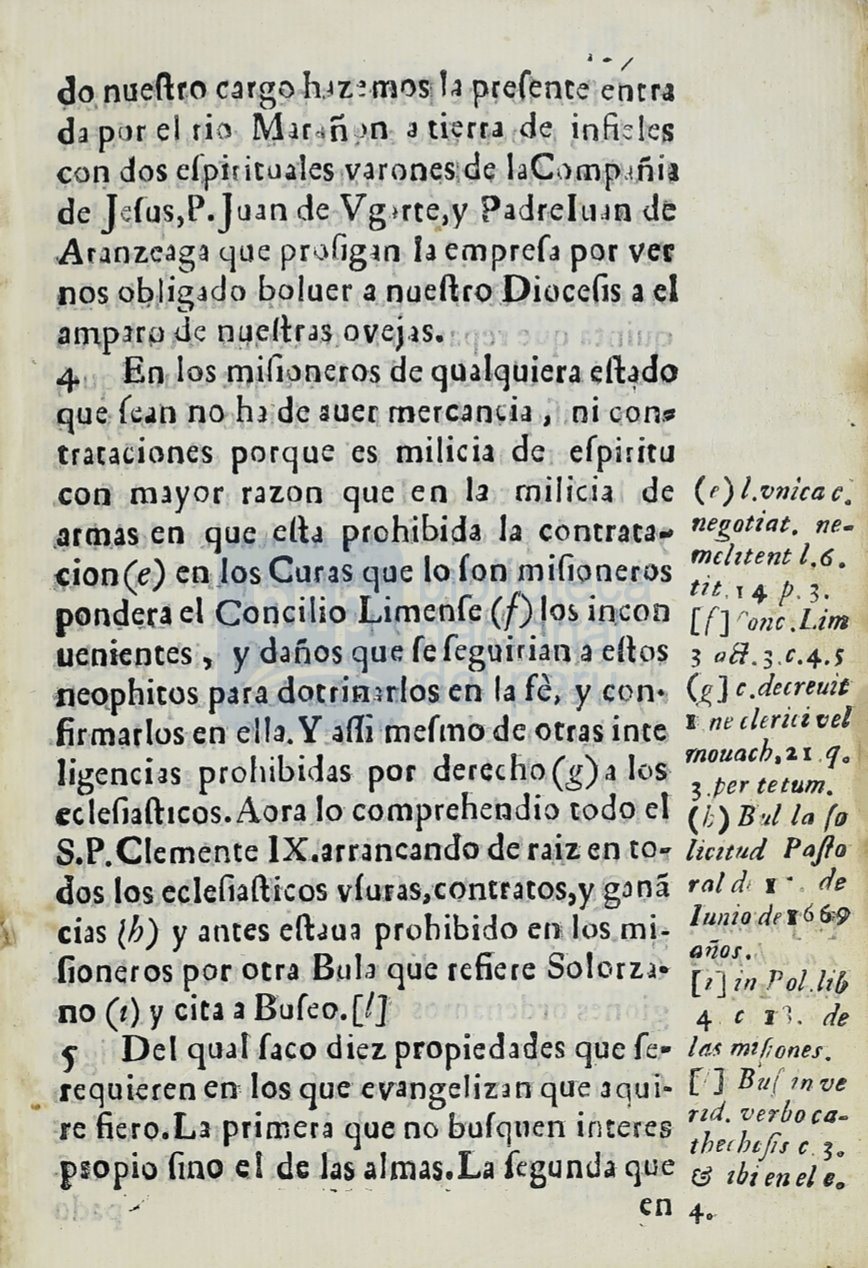 do nueſtro cargo hazemos la preſente entra
da por el rio Marañon a tierra de infieles
con dos eſpirituales varones de laCompañia
de Jeſus,P.Juan de Vgarte,y PadreIuan de
Aranzeaga que proſigan la empreſa por ver
nos obligado boluer a nueſtro Dioceſis a el
amparo de nueſtras ovejas.
4 En los miſioneros de qualquiera eſtado
que ſean no ha de auer mercancia , ni con-
trataciones porque es milicia de eſpiritu
con mayor razon que en la milicia de
armas en que eſta prohibida la contrata-
cion(e) en los Curas que lo ſon miſioneros
pondera el Concilio Limenſe (f) los incon
uenientes , y daños que ſe ſeguirian a eſtos
neophitos para dotrinarlos en la fè, y con-
firmarlos en ella.Y aſſi meſmo de otras inte
ligencias prohibidas por derecho(g)a los
eclesiaſticos.Aora lo comprehendio todo el
S.P.Clemente IX.arrancando de raiz en to-
dos los ecleſiaſticos vſuras,contratos,y ganã
cias (h) y antes eſtaua prohibido en los mi-
ſioneros por otra Bula que refiere Solorza-
no (i) y cita a Buſeo.[l]
5 Del qual ſaco diez propiedades que ſe-
requieren en los que evangelizan que aqui-
re fiero.La primera que no buſquen interes
propio ſino el de las almas.La ſegunda que
en
(e) l.vnica c.
negotiat. ne-
melitent l.6.
tit. 14 p. 3.
[f] Conc.Lim
3 act.3.c.4.5
(g] c.decreuit
1 ne clerici vel
mouach,21 q.
3.per tetum.
(h) Bul la ſo
licitud Paſto
ral de de
Iunio de 1669
años.
[i] in Pol.lib
4 c de
las miſiones.
[ ] Buſ in ve
rid. verbo ca-
thecheſis c 3.
& ibi en el c.
4.